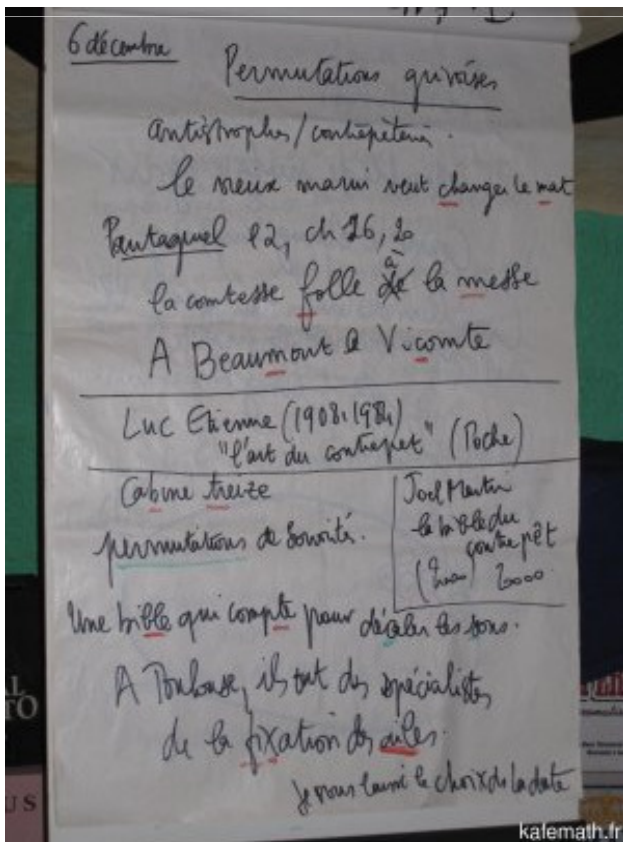 6 décembre
Permutations grivoises
antistrophes/contrepèterie.
le vieux marin veut changer le mat
Pantagruel l2, ch 16, 20
la comtesse folle de à la messe
A Beaumont le Vicomte
Luc Etienne (1908, 1984)
"l'art du contrepet" (Poche)
Cabine treize
permutations de sonorité.
Joel Martin
la bible du
contrepèt
2000
Une bible qui compte pour décaler les sons.
A Toulouse, ils ont des spécialistes
de la fixation des ailes.
Je vous laisse le choix de la date
AL
TO
US
kafemath.fr